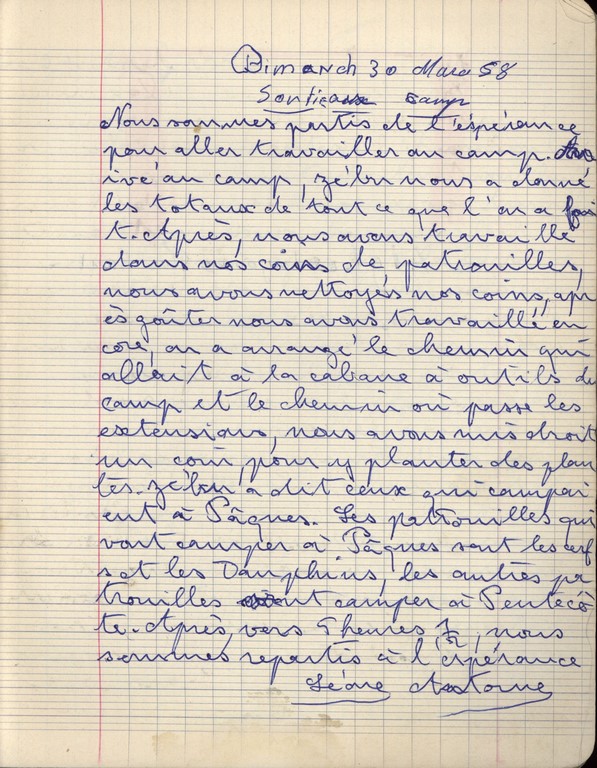 Dimanch 30 Mars 58
Sortie au camp
Nous sommes partis de l'éspérance
pour aller travailler au camp. Arr
ivé au camp, zébu nous a donné
les totaux de tout ce que l'on a fai
t. Après, nous avons travaillé
dans nos coins de patrouilles,
nous avons nettoyés nos coins, apr
ès goûter nous avons travaillé en
core, on a arrangé le chemin qui
allait à la cabane à outils du
camp et le chemin où passe les
extensions, nous avons mis droit
un coin pour y planter des plan
tes. zébu a dit ceux qui campai
ent à Pâques. Les patrouilles qui
vont camper à Pâques sont les cerf
s et les Dauphins, les autres pa
trouilles vont camper à Pentecô
te. Après, vers 5 heures 1/2, nous
sommes repartis à l'éspérance